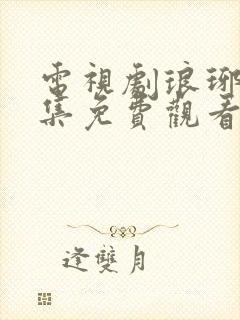 電視劇琅琊
集免費觀看
逢雙月